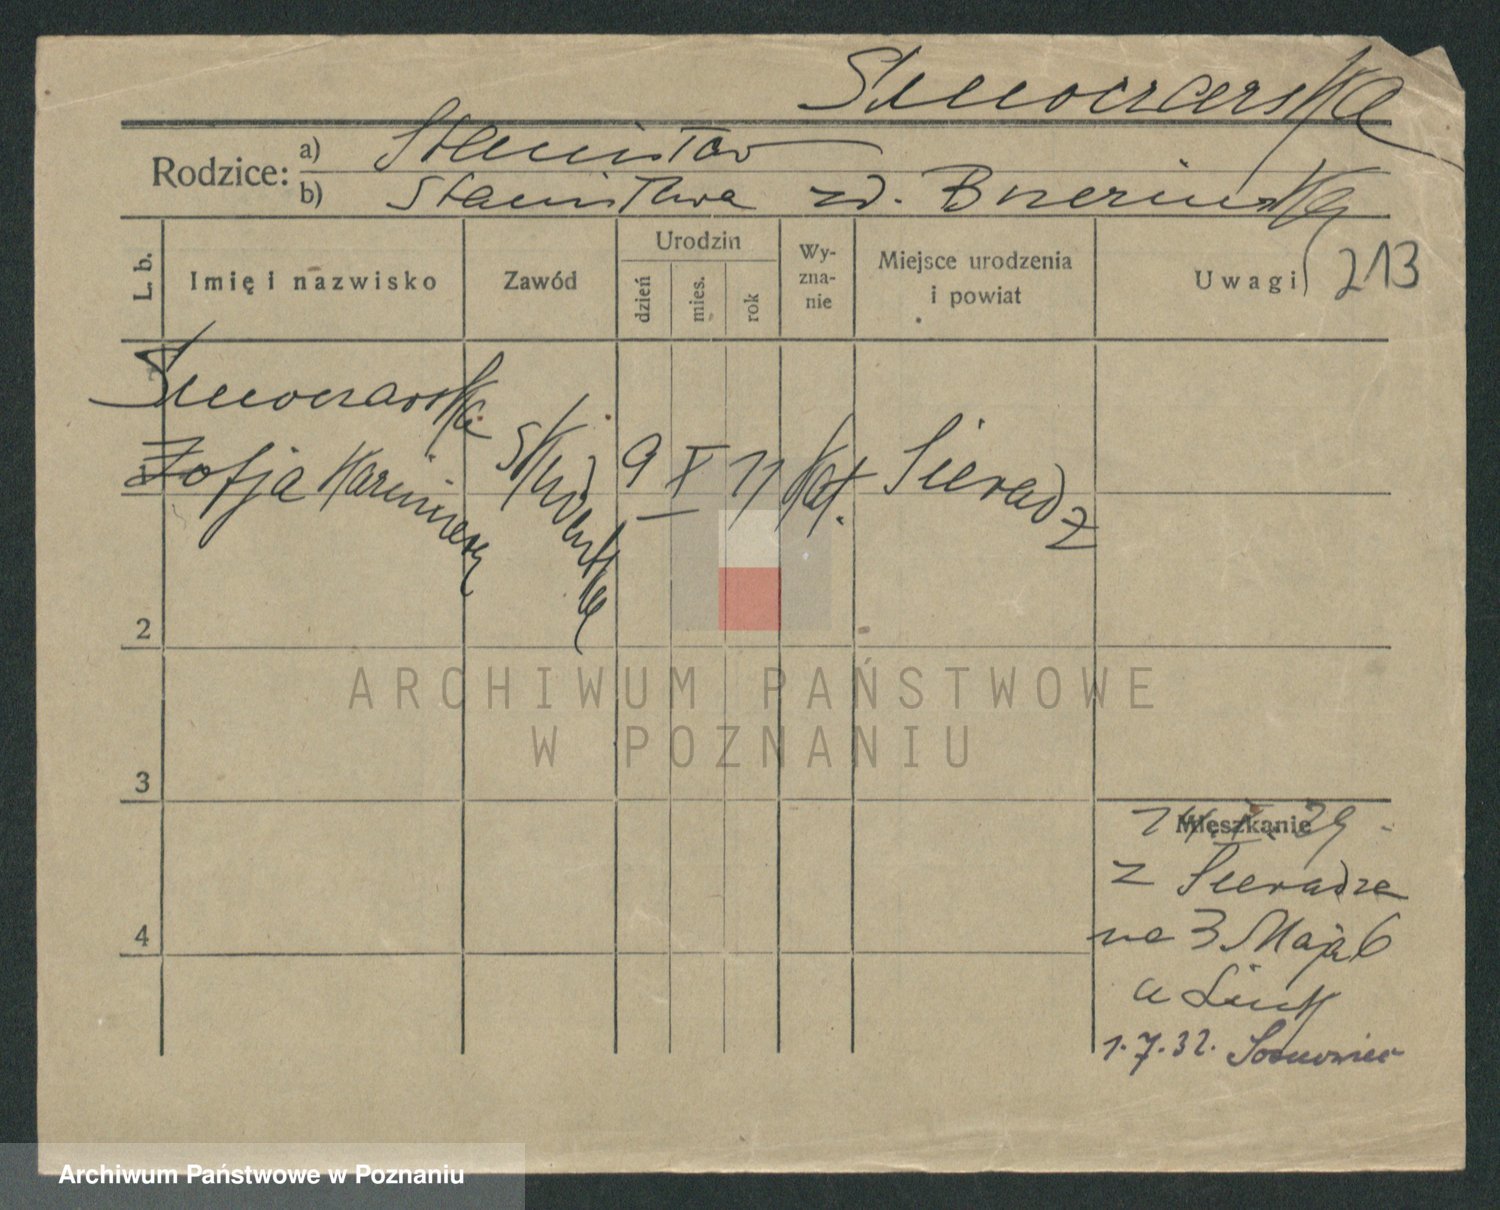 Rodzice:
a) Stanisław
b) Stanisława zd. Brzezińska
L. b.
Imię i nazwisko
Zawód
Urodzin
dzień
mies.
rok
Wy-
zna-
nie
Miejsce urodzenia
i powiat
Uwagi 213
Zofja Kazimiera
studentka
9 X 11 Kat. Sieradz
2
3
4
Mieszkanie
z Sieradza
na 3 Maja 6
1.7.32. Sosnowiec
ARCHIWUM PAŃSTWOWE
W POZNANIU
Archiwum Państwowe w Poznaniu